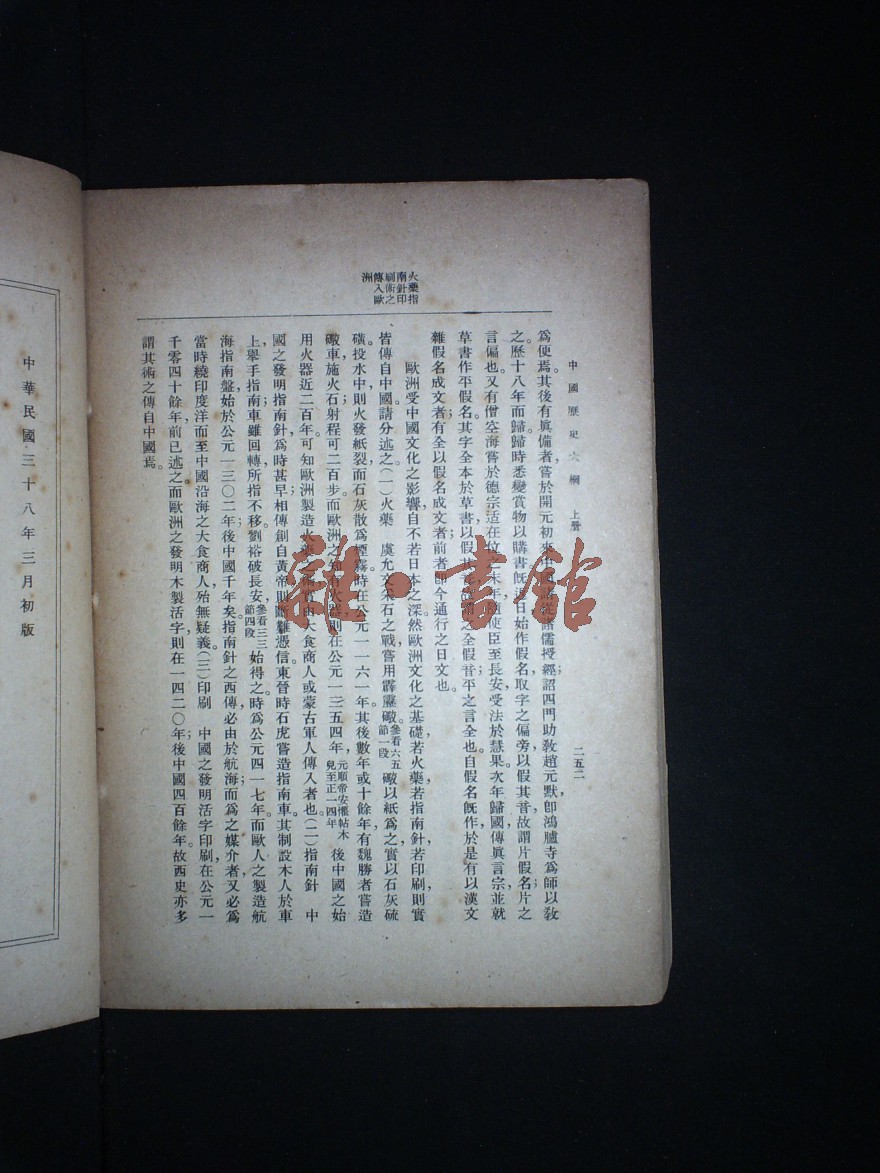 中國歷史大綱 上册
二五二
火藥指
南針印
刷術之
傳入歐
洲
爲便焉。其後有眞備者，嘗於開元初來
授經，詔四門助敎趙元默卽鴻臚寺爲師以敎
之。歷十八年而歸歸時悉變賞物以購書旣
日始作假名取字之偏旁以假其音故謂片假名片之
言偏也。又有僧空海嘗於德宗
末年
使臣至長安受法於慧果。次年歸國傳眞言宗並就
草書作平假名其字全本於草書以假其
之全假音平之言全也。自假名旣作於是有以漢文
雜假名成文者有全以假名成文者前者卽今通行之日文也。
歐洲受中國文化之影響，自不若日本之深然歐洲文化之基礎若火藥若指南針若印刷則實
皆傳自中國。請分述之（一）火藥 虞允文采石之戰，嘗用霹靂礮。參看六五節一段礮以紙爲之，實以石灰硫
磺投水中則火發紙裂而石灰散爲煙霧時在公元一一六一年。其後數年或十餘年有魏勝者嘗造
礮車施火石射程可二百步。而歐洲之知有火器則在公元一三五四年，元順帝安懽帖木兒至正一四年後中國之始
用火器近二百年。可知歐洲製造火藥之
由大食商人或蒙古軍人傳入者也。（二）指南針 中
國之發明指南針，爲時甚早相傳創自黃帝則斷難憑信東晉時石虎嘗造指南車。其制設木人於車
上，舉手指南車雖回轉所指不移。劉裕破長安，參看三三節四段始得之時爲公元四一七年。而歐人之製造航
海指南盤，始於公元一三〇二年後中國千年矣。指南針之西傳必由於航海；而爲之媒介者，又必爲
當時繞印度洋而至中國沿海之大食商人，殆無疑義。（三）印刷 中國之發明活字印刷，在公元一
千零四十餘年，前已述之而歐洲之發明木製活字則在一四二〇年；後中國四百餘年。故西史亦多
謂其術之傳自中國焉。
中華民國三十八年三月初版
雜·書館